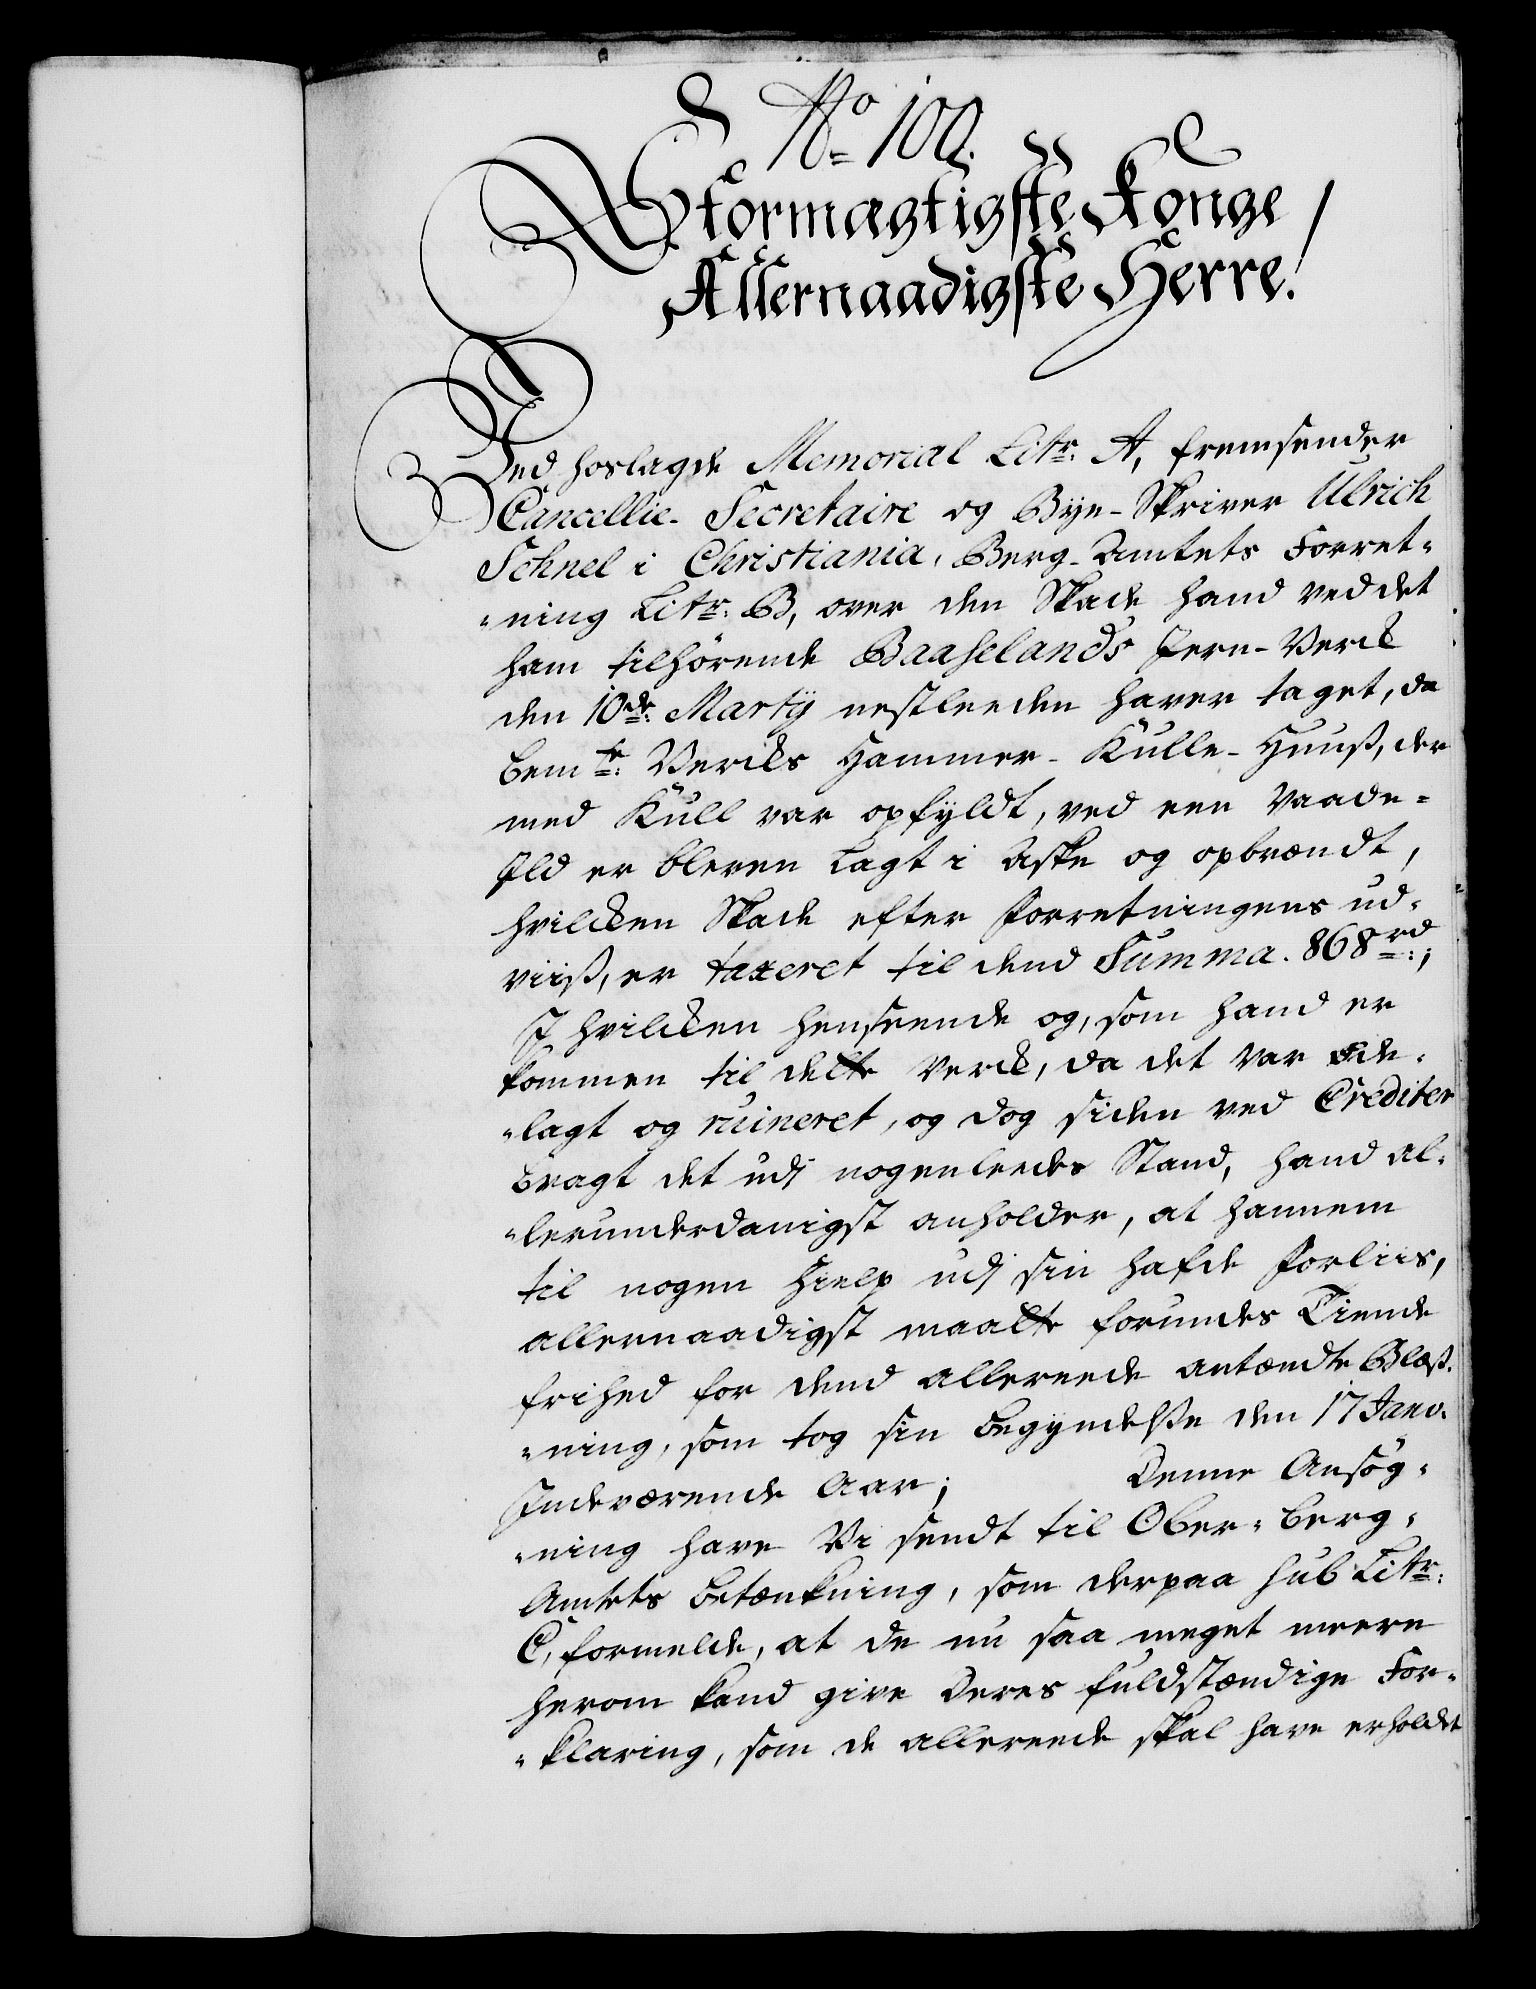 No 100.
Stormægtigste Konge
Allernaadigste Herre!
Ved hoslagde Memorial Litr: A, fremsender
Cancellie-Secretaire og Bye-Skriver Ulrich
Schnel i Christiania, Berg-Amtets Forret-
-ning Litr: B, over den Skade hand ved det
ham tilhørende Baaselands Jern-Verck
den 10de: Martÿ nestleeden haver taget, da
bemte: Vercks Hammer-Kulle-Huuß, der
med Kull var opfyldt, ved een Vaade-
Ild er bleven Lagt i Aske og opbrændt,
hvilcken Skade efter Forretningens ud-
viiß, er taxeret til dend Summa. 868 rd:;
I hvilcken henseende og, som hand er
kommen til dette Verck, da det var øde-
-lagt og ruineret, og dog siden ved Crediter
bragt det udi nogenleedes Stand, hand al-
-lerunderdanigst anholder, at hannem
til nogen Hielp udi sin hafde Forliis,
allernaadigst maatte forundes Tiende
frihed for dend allereede antændte Blæs-
-ning, som tog sin begyndelße den 17 Janv.
Indeværende Aar; Denne Ansøg-
-ning have Vi sendt til Ober-berg-
Amtets betænkning, som derpaa sub Litr:
C, formelde, at de nu saa meget meere
herom kand give Deres fuldstændige For-
-klaring, som de allereede skal have erholdet